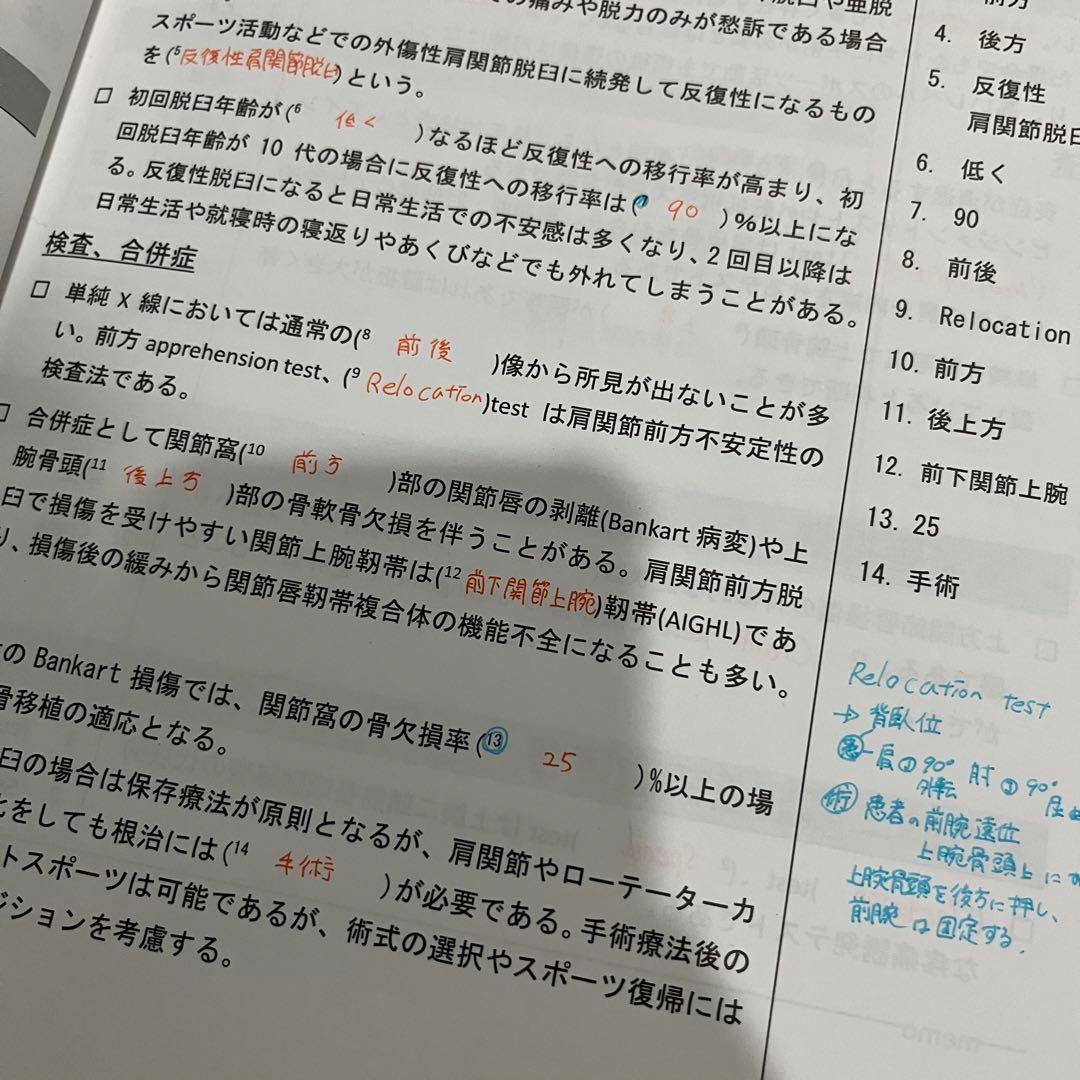 の痛みや脱力のみが愁訴である場合
スポーツ活動などでの外傷性肩関節脱臼に続発して反復性になるもの
を(5反復性肩関節脱臼)という。
□ 初回脱臼年齢が(6 低く )なるほど反復性への移行率が高まり、初
回脱臼年齢が 10 代の場合に反復性への移行率は(7 90 )%以上にな
る。反復性脱臼になると日常生活での不安感は多くなり、2回目以降は
日常生活や就寝時の寝返りやあくびなどでも外れてしまうことがある。
検査、合併症
□ 単純 X 線においては通常の(8 前後 )像から所見が出ないことが多
い。前方 apprehension test、(9 Relocation)test は肩関節前方不安定性の
検査法である。
□ 合併症として関節窩(10 前方 )部の関節唇の剥離(Bankart 病変)や上
腕骨頭(11 後上方 )部の骨軟骨欠損を伴うことがある。肩関節前方脱
臼で損傷を受けやすい関節上腕靭帯は(12 前下関節上腕)靭帯(AIGHL)であ
り、損傷後の緩みから関節唇靭帯複合体の機能不全になることも多い。
の Bankart 損傷では、関節窩の骨欠損率(13 25 )%以上の場
骨移植の適応となる。
臼の場合は保存療法が原則となるが、肩関節やローテーターカ
をしても根治には(14 手術 )が必要である。手術療法後の
トスポーツは可能であるが、術式の選択やスポーツ復帰には
ジションを考慮する。
前方
4. 後方
5. 反復性
肩関節脱臼
6. 低く
7. 90
8. 前後
9. Relocation
10. 前方
11. 後上方
12. 前下関節上腕
13. 25
14. 手術
Relocation test
→ 背臥位
患-肩① 90° 肘① 90°
外転 屈曲
術 患者の前腕遠位
上腕骨頭上に
上腕骨頭を後方に押し、
前腕は固定する.
memo